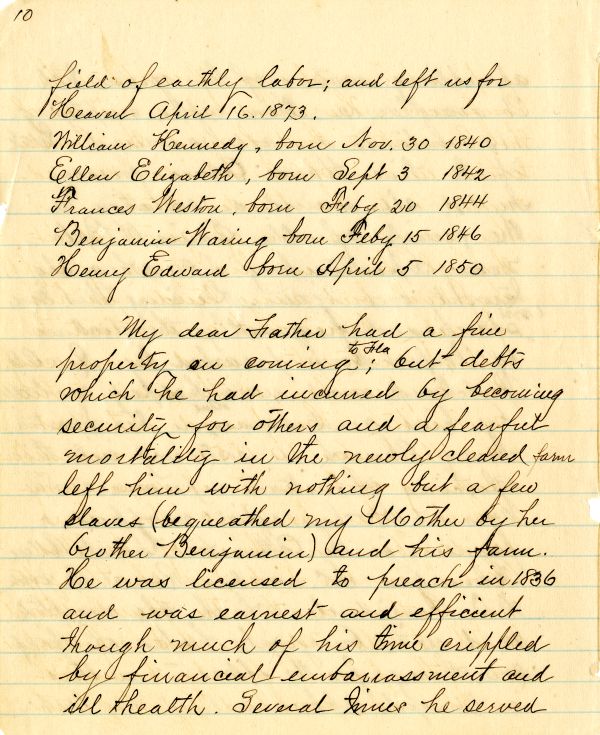 10
field of earthly labor; and left us for
Heaven April 16. 1873.
William Kennedy, born Nov. 30 1840
Ellen Elizabeth, born Sept 3 1842
Frances Weston, born Feby 20 1844
Benjamin Waring born Feby 15 1846
Henry Edward born April 5 1850
My dear Father had a fine
property on coming to Fla; but debts
which he had incurred by becoming
security for others and a fearful
mortality in the newly cleared farm
left him with nothing but a few
slaves (bequeathed my Mother by her
brother Benjamin) and his farm.
He was licensed to preach in 1836
and was earnest and efficient
though much of his time crippled
by financial embarrassment and
ill health. Several times he served